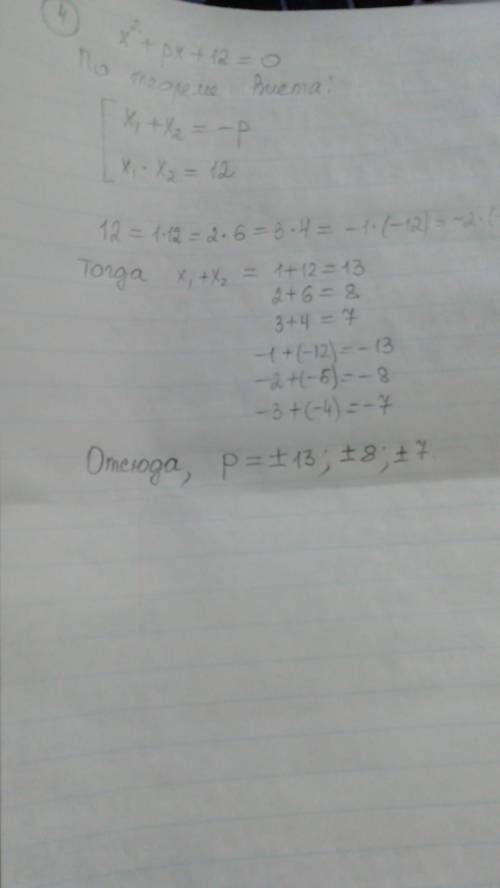 4
x² + px + 12 = 0
По теореме Виета:
x₁ + x₂ = -p
x₁ · x₂ = 12
12 = 1·12 = 2·6 = 3·4 = -1·(-12) = -2·(-
Тогда x₁+x₂ = 1+12=13
2+6=8
3+4=7
-1+(-12)=-13
-2+(-6)=-8
-3+(-4)=-7
Отсюда, p=±13; ±8; ±7.